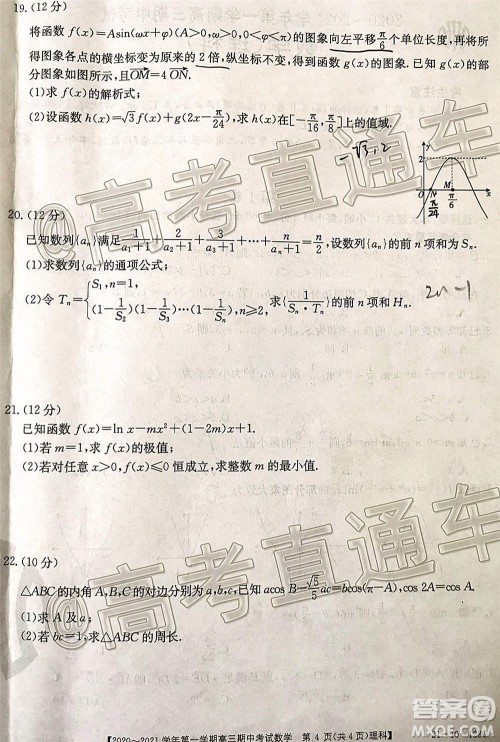 19.(12分)
将函数 f(x)=Asin(ωx+φ)(A>0,ω>0,0<φ<π)的图象向左平移π/6个单位长度,再将所
得图象各点的横坐标变为原来的2倍,纵坐标不变,得到函数 g(x)的图象.已知 g(x)的部
分图象如图所示,且OM=4ON.
(1)求 f(x)的解析式;
(2)设函数 h(x)=√3f(x)+g(2x-π/24),求 h(x)在[-π/16,π/8]上的值域.
-√3, 2
y
2
O
N
M
x
π/24
π/6
20.(12分)
已知数列{aₙ}满足1/(a₁+1)+2/(a₂+1)+3/(a₃+1)+…+n/(aₙ+1)=n/2,设数列{aₙ}的前 n 项和为 Sₙ.
(1)求数列{aₙ}的通项公式;
(2)令 Tₙ={S₁,n=1,
(1-1/S₂)(1-1/S₃)…(1-1/Sₙ),n≥2,求{1/(Sₙ·Tₙ)}的前 n 项和 Hₙ.
2n-1
21.(12分)
已知函数 f(x)=ln x-mx²+(1-2m)x+1.
(1)若 m=1,求 f(x)的极值;
(2)若对任意 x>0,f(x)≤0 恒成立,求整数 m 的最小值.
22.(10分)
△ABC 的内角 A,B,C 的对边分别为 a,b,c,abcos C=b²-√5/5 ac=bcos(π-A),cos 2A=cos A.
(1)求 A 及 a;
(2)若 bc=1,求△ABC 的周长.
【2020~2021学年第一学期高三期中考试数学 第 4 页(共4页)理科】
@高考直通车
@高考直通车